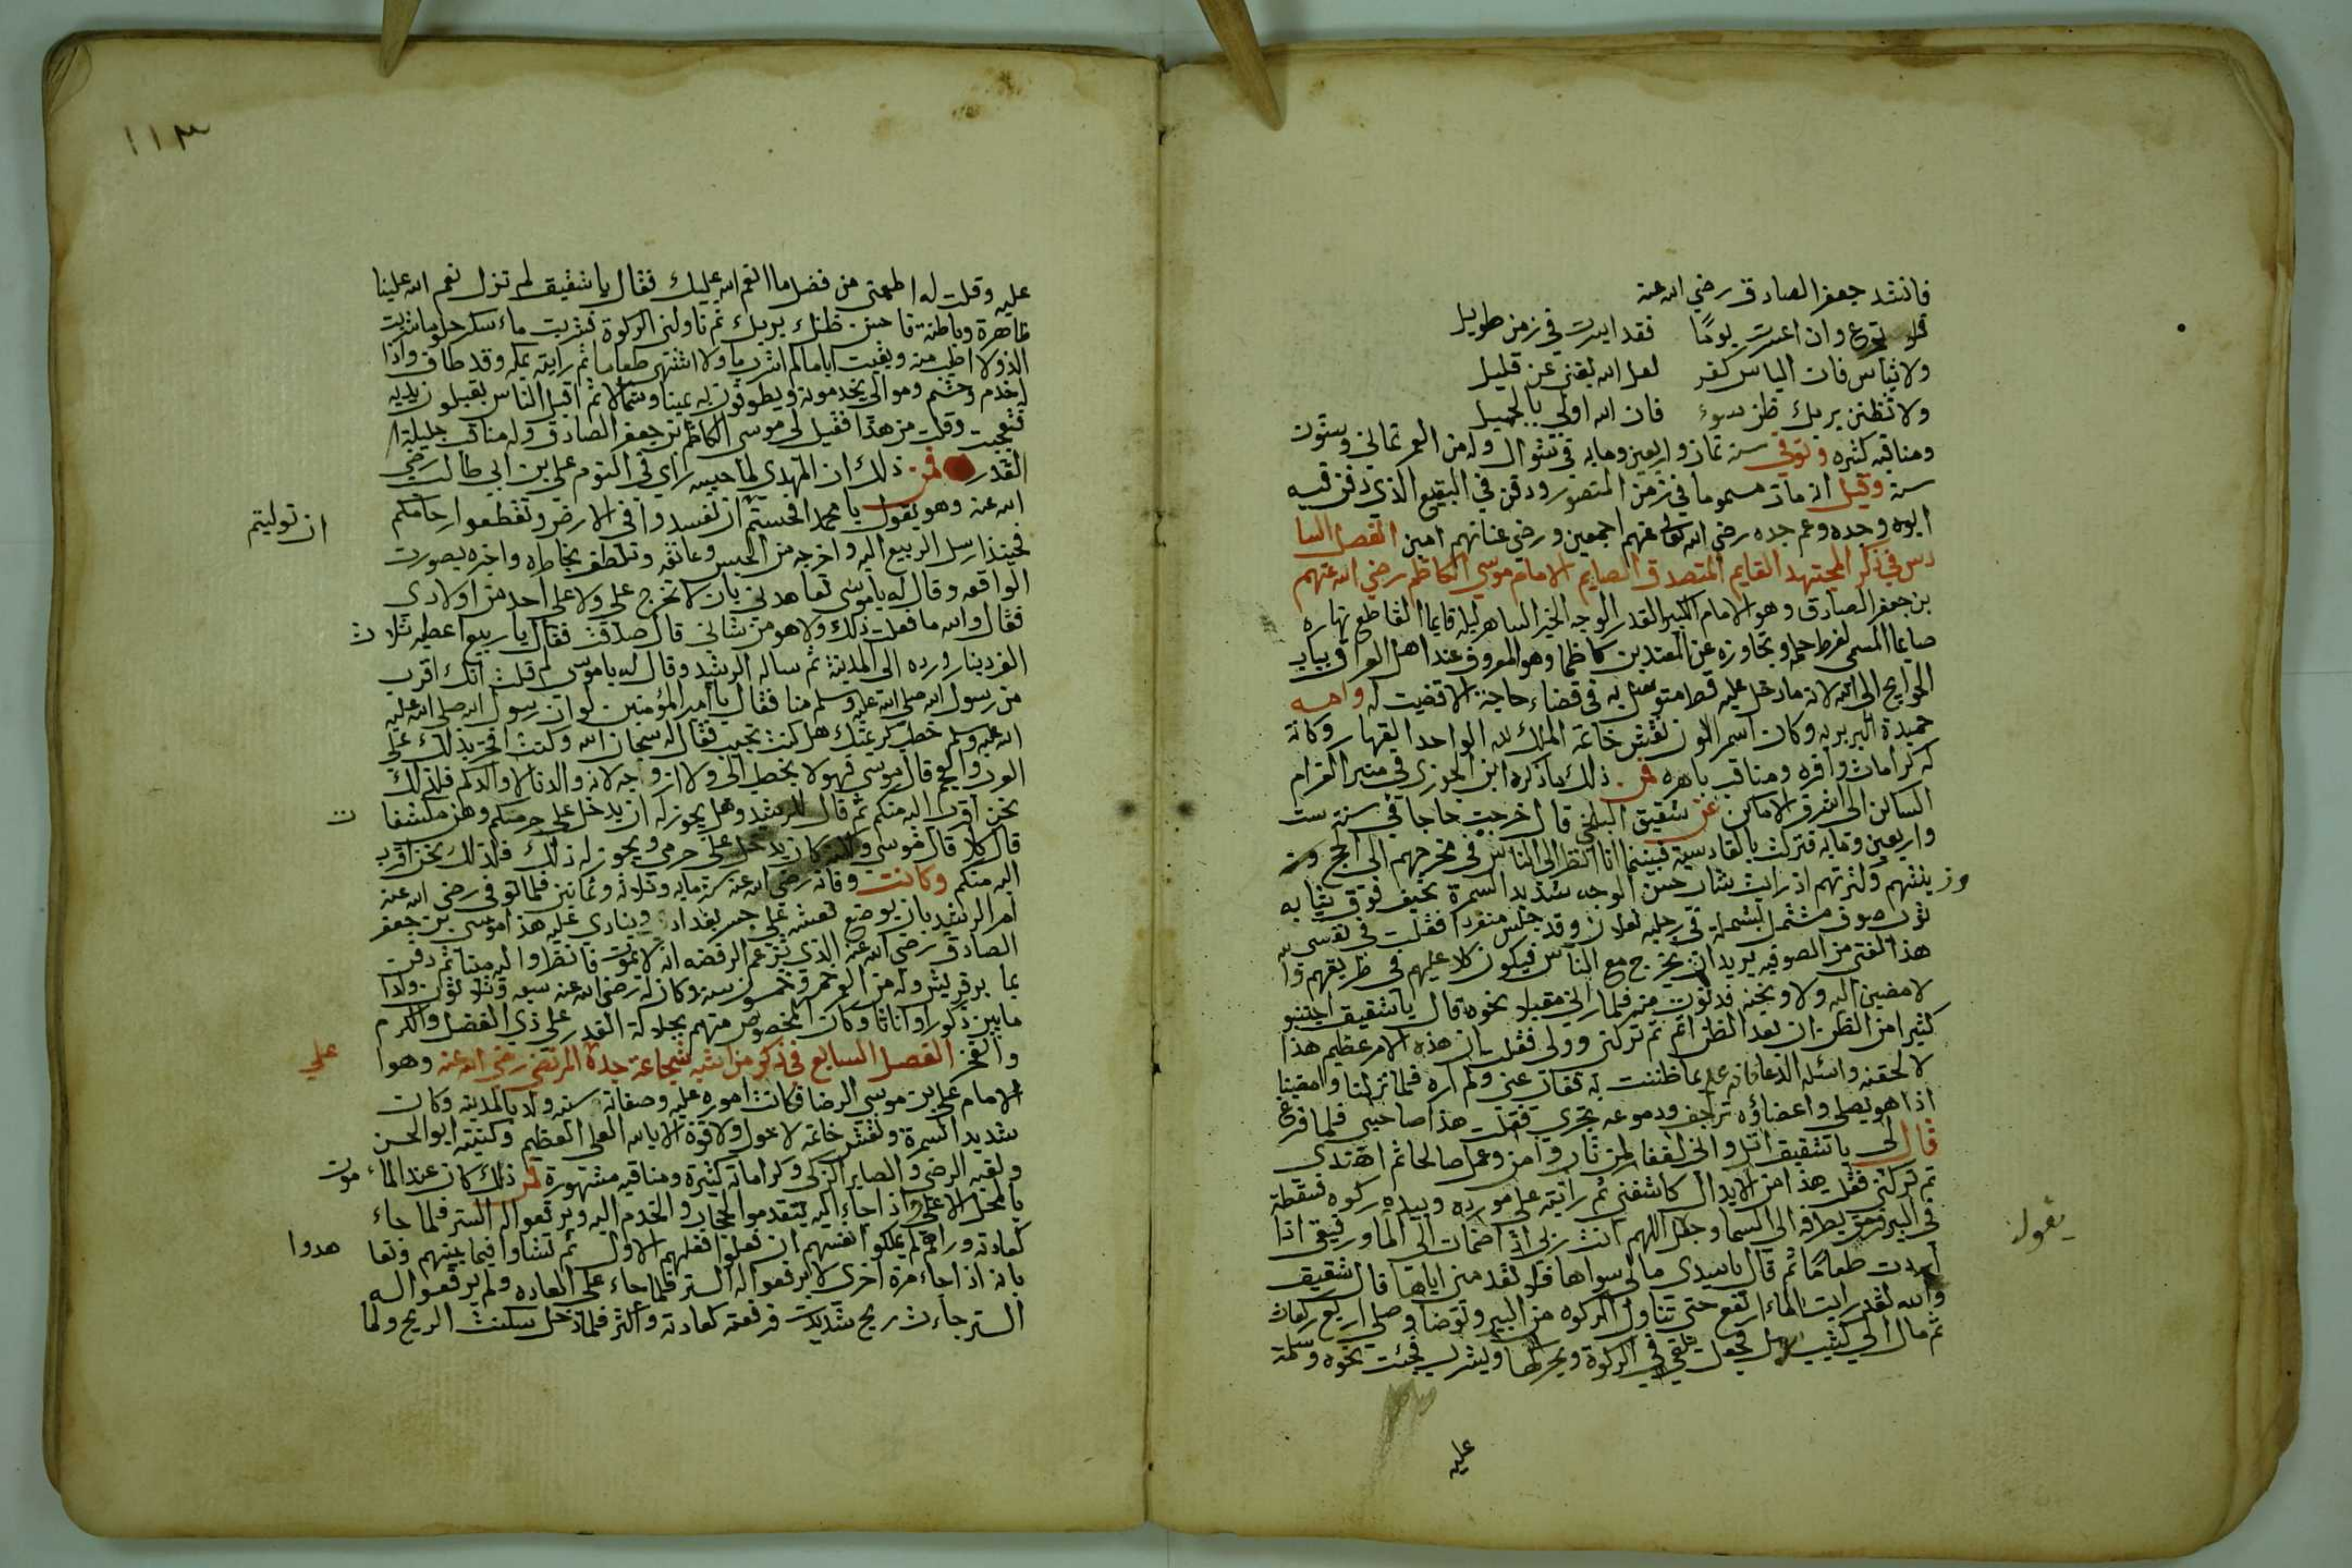 فانشد جعفر الصادق رضي الله عنه
فلا تجزع وان اعسرت يومًا فقد ايسرت في زمن طويل
ولا تيأس فان اليأس كفر لعل الله يغني عن قليل
ولا تظنن بربك ظن سوء فان الله اولي بالجميل
ومناقبه كثيره وتوفي سنة ثمان واربعين ومايه في شوال وله من العمر ثماني وستون
سنة وقيل انه مات مسموما في زمن المنصور ودفن في البقيع الذي دفن فيه
ابوه وجده وعم جده رضي الله تعالى عنهم اجمعين ورضي عنا بهم امين الفصل السا
دس في ذكر المجتهد القايم المتصدق الصايم الامام موسي الكاظم رضي الله عنهم
بن جعفر الصادق وهو الامام الكبير القدر الوجه الخير الساهر ليله قايما القاطع نهاره
صايما المسمى لفرط حلمه وتجاوزه عن المعتدين كاظما وهو المعروف عند اهل العراق بباب
الحوايج الى الله لانه ما دخل عليه قط متوسل به في قضاء حاجة الا قضيت له وامه
حميدة البربريه وكان اسمر اللون نقش خاتمه الملك لله الواحد القهار وكانة
له كرامات وافره ومناقب باهره فمن ذلك ما ذكره ابن الجوزي في مثير الغرام
الساكن الى اشرف الاماكن عن شقيق البلخي قال خرجت حاجا في سنة ست
واربعين ومايه فنزلت بالقادسية فبينما انا انظر الى الناس في مخرجهم الى الحج و
زينتهم وكثرتهم اذ رايت شاب حسن الوجه شديد السمرة نحيف فوق ثيابه
ثوب صوف مشتمل بشمله في رجليه نعلان وقد جلس منفردا فقلت في نفسي
هذا الفتى من الصوفيه يريد ان يخرج مع الناس فيكون كلا عليهم في طريقهم وا
لا مضين اليه ولاوبخنه فدنوت منه فلما راني مقبلا نحوه قال يا شقيق اجتنبو
كثيرا من الظن ان بعد الظن اثم ثم تركني وولى فقلت ان هذه الامر عظيم هذا
لالحقنه واسئله الدعا فانه علم بما ظننت به فغاب عني ولم اره فلما نزلنا وامضينا
اذا هو يصلي واعضاؤه تراجف ودموعه تجري فقلت هذا صاحبي فلما فرغ
قال لي يا شقيق اتل واني لغفار لمن تاب وامن وعمل صالحا ثم اهتدي
ثم تركني فقلت هذا من الابدال كاشفني ثم رايته على مورده وبيده ركوه فسقطة
في البير فرمق بطرفه الى السما وجعل اللهم انت ربي اذا ضمات الى الما ورفيقي اذا
يقول
اردت طعامًا ثم قال يا سيدي مالي سواها فلا تفقدمني اياها قال شقيق
والله لقد رايت الماء ارتفع حتى تناول الركوه من البير وتوضا وصلي اربع ركعات
ثم مال الي كثيب رمل فجعل يلقي في الركوة ويحركها ويشرب فجئت نحوه وسلمة
عليه
١١٣
عليه وقلت له اطعمني من فضل ما انعم الله عليك فقال يا شقيق لم تزل نعم الله علينا
ظاهرة وباطنة فاحسن ظنك بربك ثم ناولني الركوة فشربت ماء سكر حلو ما شربت
الذ ولا اطيب منه وبقيت اياما لم اشرب ما ولا اشتهي طعاما ثم رايته بمكه وقد طاف واذا
له خدم وحشم وموالي يخدمونه ويطوفون به يمينا وشمالا ثم اقبل الناس يقبلون يديه
فتعجبت وقلت من هذا فقيل لي موسى الكاظم بن جعفر الصادق وله مناقب جليلة ا
لقدر فمن ذلك ان المهدي لما حبسه راي في النوم علي بن ابي طالب رضي
الله عنه وهو يقول يا محمد افحسبتم ان تفسدوا في الارض وتقطعوا ارحامكم
ان توليتم
فحينئذ ارسل الربيع اليه واخرجه من الحبس وعانقه وتلطف بخاطره واخبره بصورت
الواقعه وقال له يا موسى تعاهدني بان لا تخرج علي ولا على احد من اولادي
فقال والله ما فعلت ذلك ولا هو من شاني قال صدقت فقال يا ربيع اعطيه ثلاث
الف دينار ورده الى المدينة ثم ساله الرشيد وقال له يا موسى لم قلت انك اقرب
من رسول الله صلى الله عليه وسلم منا فقال يا امير المؤمنين لو ان رسول الله صلى الله عليه
الله عليه وسلم خطب كريمتك هل كنت تجيب فقال سبحان الله وكنت افتخر بذلك على
العرب والعجم قال موسى فهو لا يخطب الي ولا ازوجه لانه والدنا لا والدكم فلذلك
نحن اقرب اليه منكم ثم قال للرشيد وهل يجوز له ان يدخل على حرمكم وهن مكشفا
ت
قال كلا قال موسى ولكنه كان يدخل على حرمي ويجوز له ذلك فلذلك نحن اقرب
اليه منكم وكانت وفاته رضي الله عنه سنة مايه وثلاثه وثمانين فلما توفي رضي الله عنه
امر الرشيد بان يوضع نعشه على جسر بغداد وينادي عليه هذا موسى بن جعفر
الصادق رضي الله عنه الذي تزعم الرفضه انه لا يموت فانظروا اليه ميتا ثم دفن
بمقابر قريش وله من العمر خمس وخمسون سنه وكان له رضي الله عنه سبعه وثلاثون ولدا
ما بين ذكورا واناثا وكان المخصوص منهم بجلالة القدر علي ذي الفضل والكرم
والفخر الفصل السابع في ذكر من اشبه شجاعة جده المرتضي رضي الله عنه وهوا
علي
الامام علي بن موسي الرضا فكانت اموره عليه وصفاته سنيه ولد بالمدينه وكان
شديد السمرة ونقش خاتمه لا حول ولا قوة الا بالله العلي العظيم وكنيته ابو الحسن
ولقبه الرضي والصابر الزكي وكراماته كثيرة ومناقبه مشهورة فمن ذلك كان عند الماء
مون
بالمحل الاعلى واذا جاء اليه يتقدموا الحجاب والخدم اليه ويرفعوا له الستر فلما جاء
كعادته وراهم لم يملكوا انفسهم ان فعلوا فعلهم الاول ثم تشاوا فيما بينهم وتعا
هدوا
بانه اذا جاء مرة اخرى لا يرفعوا له الستر فلما جاء على العاده ولم يرفعوا له
الستر جاءت ريح شديدت فرفعته كعادته واكثر فلما دخل سكنت الريح ولما